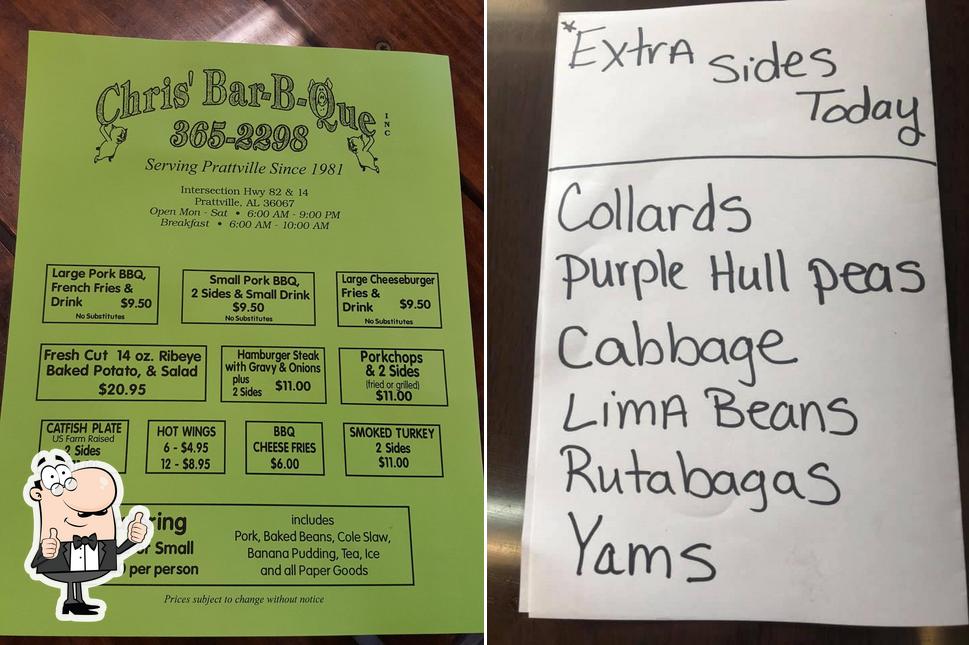 Chris' Bar-B-Que INC
365-2298
Serving Prattville Since 1981
Intersection Hwy 82 & 14
Prattville, AL 36067
Open Mon - Sat • 6:00 AM - 9:00 PM
Breakfast • 6:00 AM - 10:00 AM
Large Pork BBQ,
French Fries &
Drink $9.50
No Substitutes
Small Pork BBQ,
2 Sides & Small Drink
$9.50
No Substitutes
Large Cheeseburger
Fries &
Drink $9.50
No Substitutes
Fresh Cut 14 oz. Ribeye
Baked Potato, & Salad
$20.95
Hamburger Steak
with Gravy & Onions
plus
2 Sides $11.00
Porkchops
& 2 Sides
(fried or grilled)
$11.00
CATFISH PLATE
US Farm Raised
2 Sides
HOT WINGS
6 - $4.95
12 - $8.95
BBQ
CHEESE FRIES
$6.00
SMOKED TURKEY
2 Sides
$11.00
Small
per person
includes
Pork, Baked Beans, Cole Slaw,
Banana Pudding, Tea, Ice
and all Paper Goods
Prices subject to change without notice
*ExtrA sides
Today
Collards
Purple Hull peas
Cabbage
LimA Beans
Rutabagas
Yams